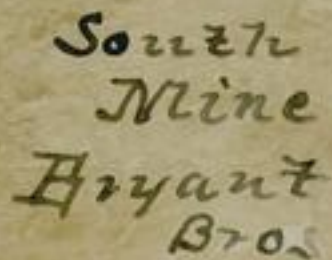 South
Mine
Bryant
Bros